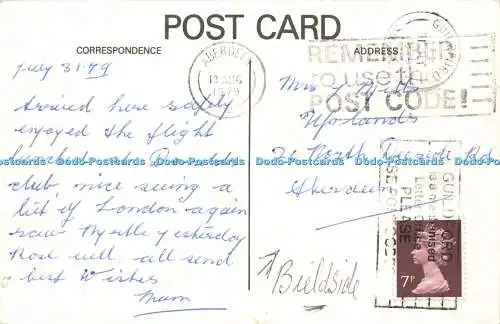 POST CARD
CORRESPONDENCE
ADDRESS
July 31.79
arrived here safely
enjoyed the flight
lunched at
club, nice seeing a
bit of London again
saw Myrtle yesterday
Rose well, all send
best wishes
Mum
ABERDEEN
AUG
1979
REMEMBER
to use the
POST CODE!
GUILDFORD
Mrs Mills
Morlands
North Rd
Aberdeen
Bieldside
GUILDFORD
is a mechanised
Letter Office
PLEASE
USE POSTCODES
7P
Dodo-Postcards Dodo-Postcards Dodo-Postcards Dodo-Postcards Dodo-Postcards Dodo-Postcards